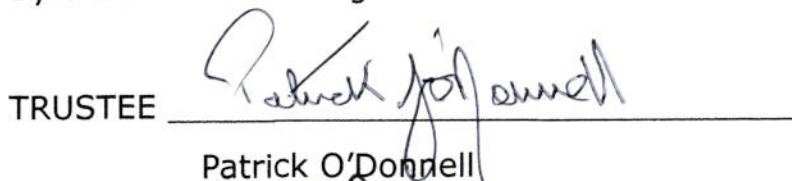 TRUSTEE Patrick J O'Donnell
Patrick O'Donnell